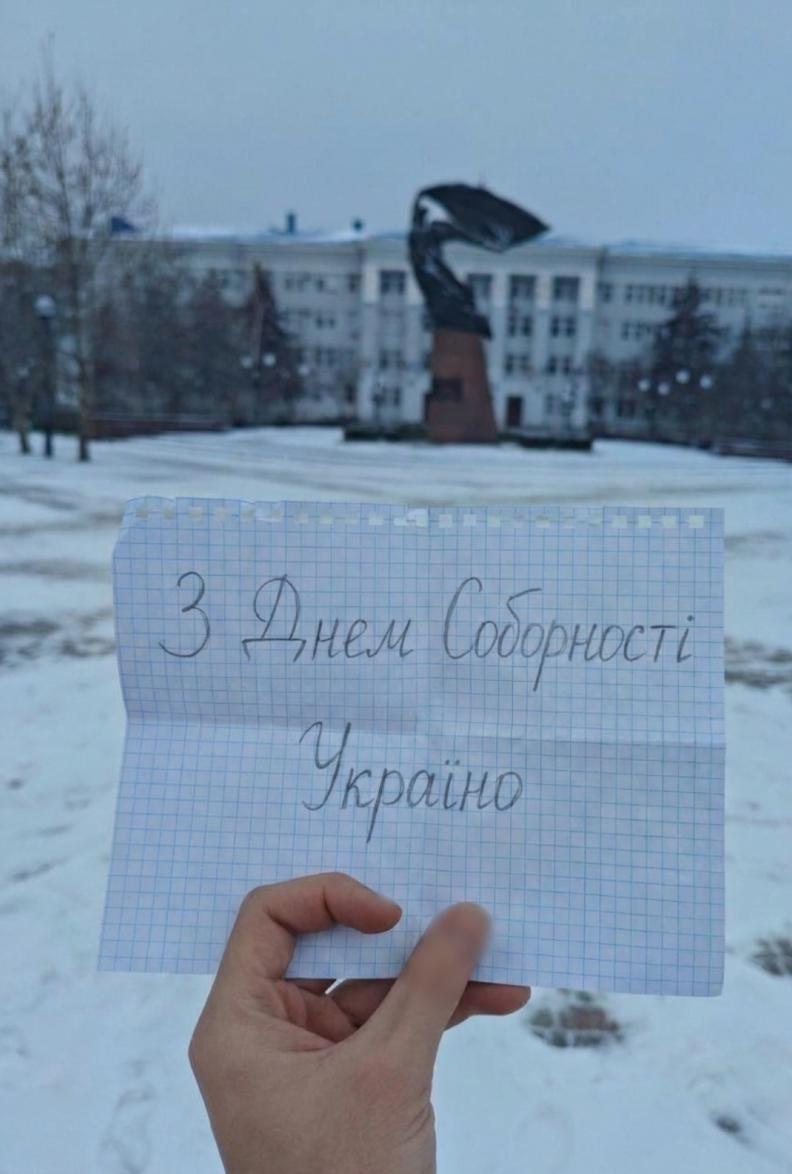 З Днем Соборності
Україно